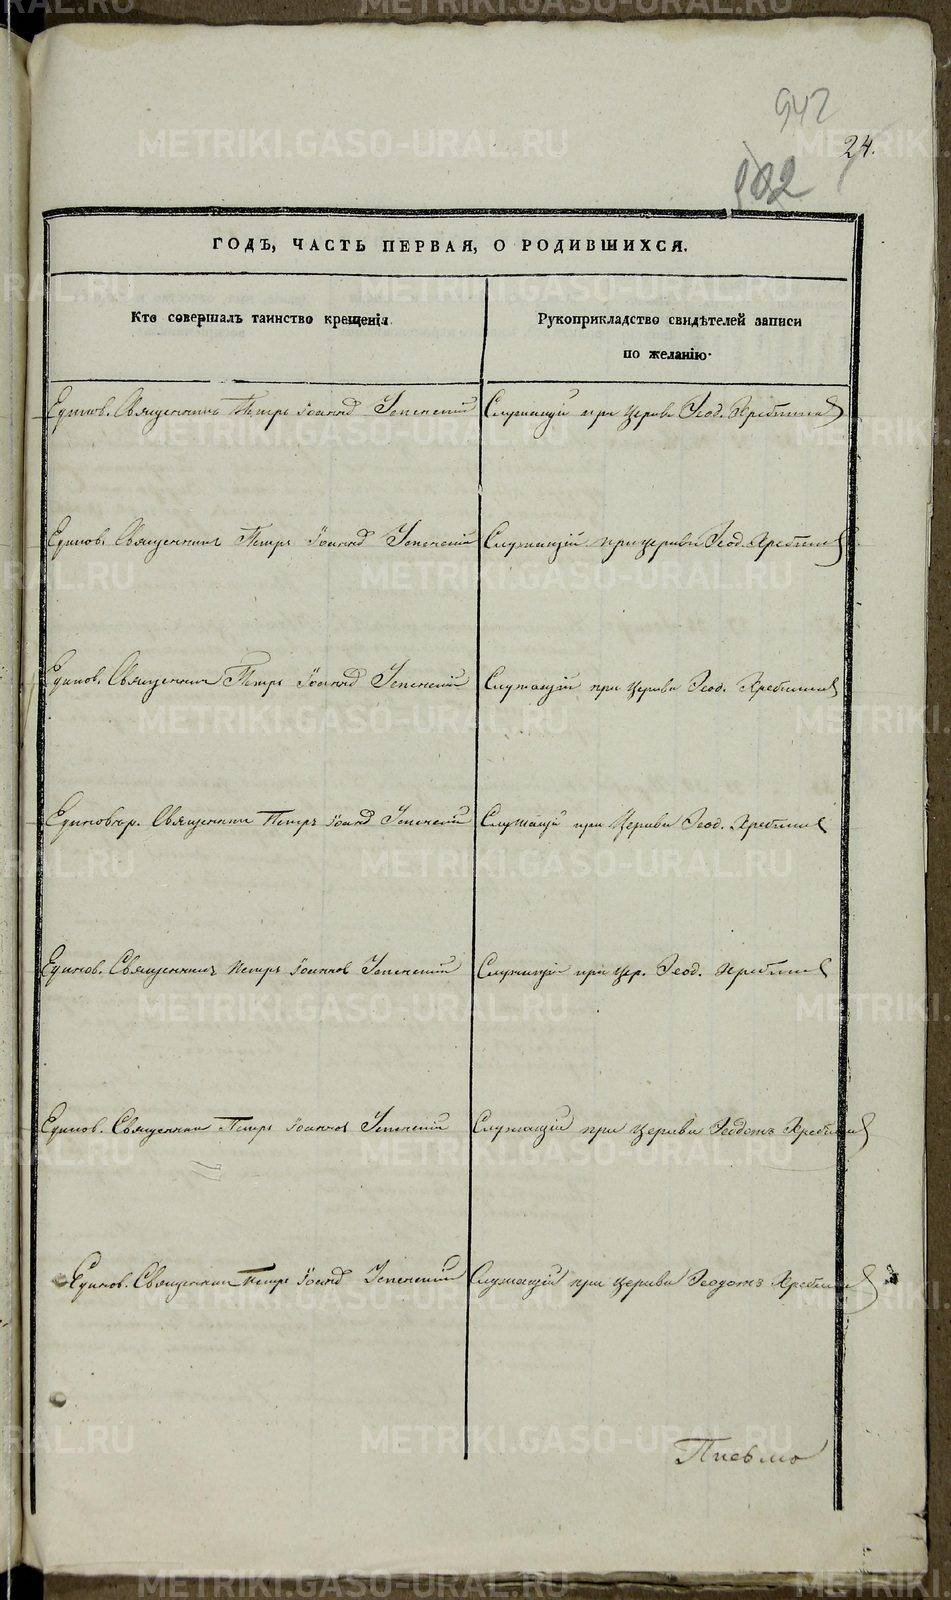 942
24.
ГОДЪ, ЧАСТЬ ПЕРВАЯ, О РОДИВШИХСЯ.
Кто совершалъ таинство крещенія.
Рукоприкладство свидѣтелей записи
по желанію.
Единов. Священникъ Петръ Іоаннов Успенскій
Служащій при церкви Ѳеод.
Единов. Священникъ Петръ Іоаннов Успенскій
Служащій при церкви Ѳеод.
Единов. Священник Петръ Іоаннов Успенскій
Служащій при церкви Ѳеод.
Единовѣр. Священник Петръ Іоаннов Успенскій
Служащій при Церкви Ѳеод.
Единов. Священникъ Петръ Іоаннов Успенскій
Служащій при цер. Ѳеод.
Единов. Священник Петръ Іоаннов Успенскій
Служащій при церкви Ѳеодотъ
Единов. Священник Петръ Іоаннов Успенскій
Служащій при церкви Ѳеодотъ
METRIKI.GASO-URAL.RU